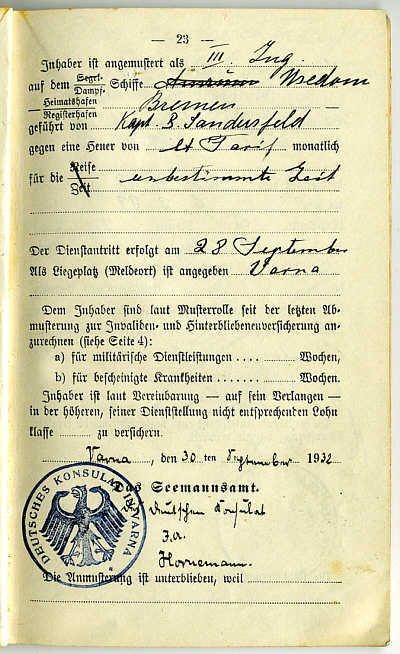 — 23 —
Inhaber ist angemustert als III. Ing.
auf dem Segel- Dampf- Schiffe Usedom
Heimathafen Registerhafen Bremen
geführt von Kapt. S. Sandersfeld
gegen eine Heuer von lt Tarif monatlich
für die Reise Zeit unbestimmte Zeit
Der Dienstantritt erfolgt am 28 September
Als Liegeplatz (Meldeort) ist angegeben Varna
Dem Inhaber sind laut Musterrolle seit der letzten Ab-
musterung zur Invaliden- und Hinterbliebenenversicherung an-
zurechnen (siehe Seite 4):
a) für militärische Dienstleistungen .... Wochen,
b) für bescheinigte Krankheiten ........ Wochen.
Inhaber ist laut Vereinbarung — auf sein Verlangen —
in der höheren, seiner Dienststellung nicht entsprechenden Lohn
klasse ........ zu versichern.
Varna, den 30 ten September 1932
Das Seemannsamt.
Deutsches Konsulat
I.A.
Hornemann.
DEUTSCHES KONSULAT IN VARNA
Die Anmusterung ist unterblieben, weil